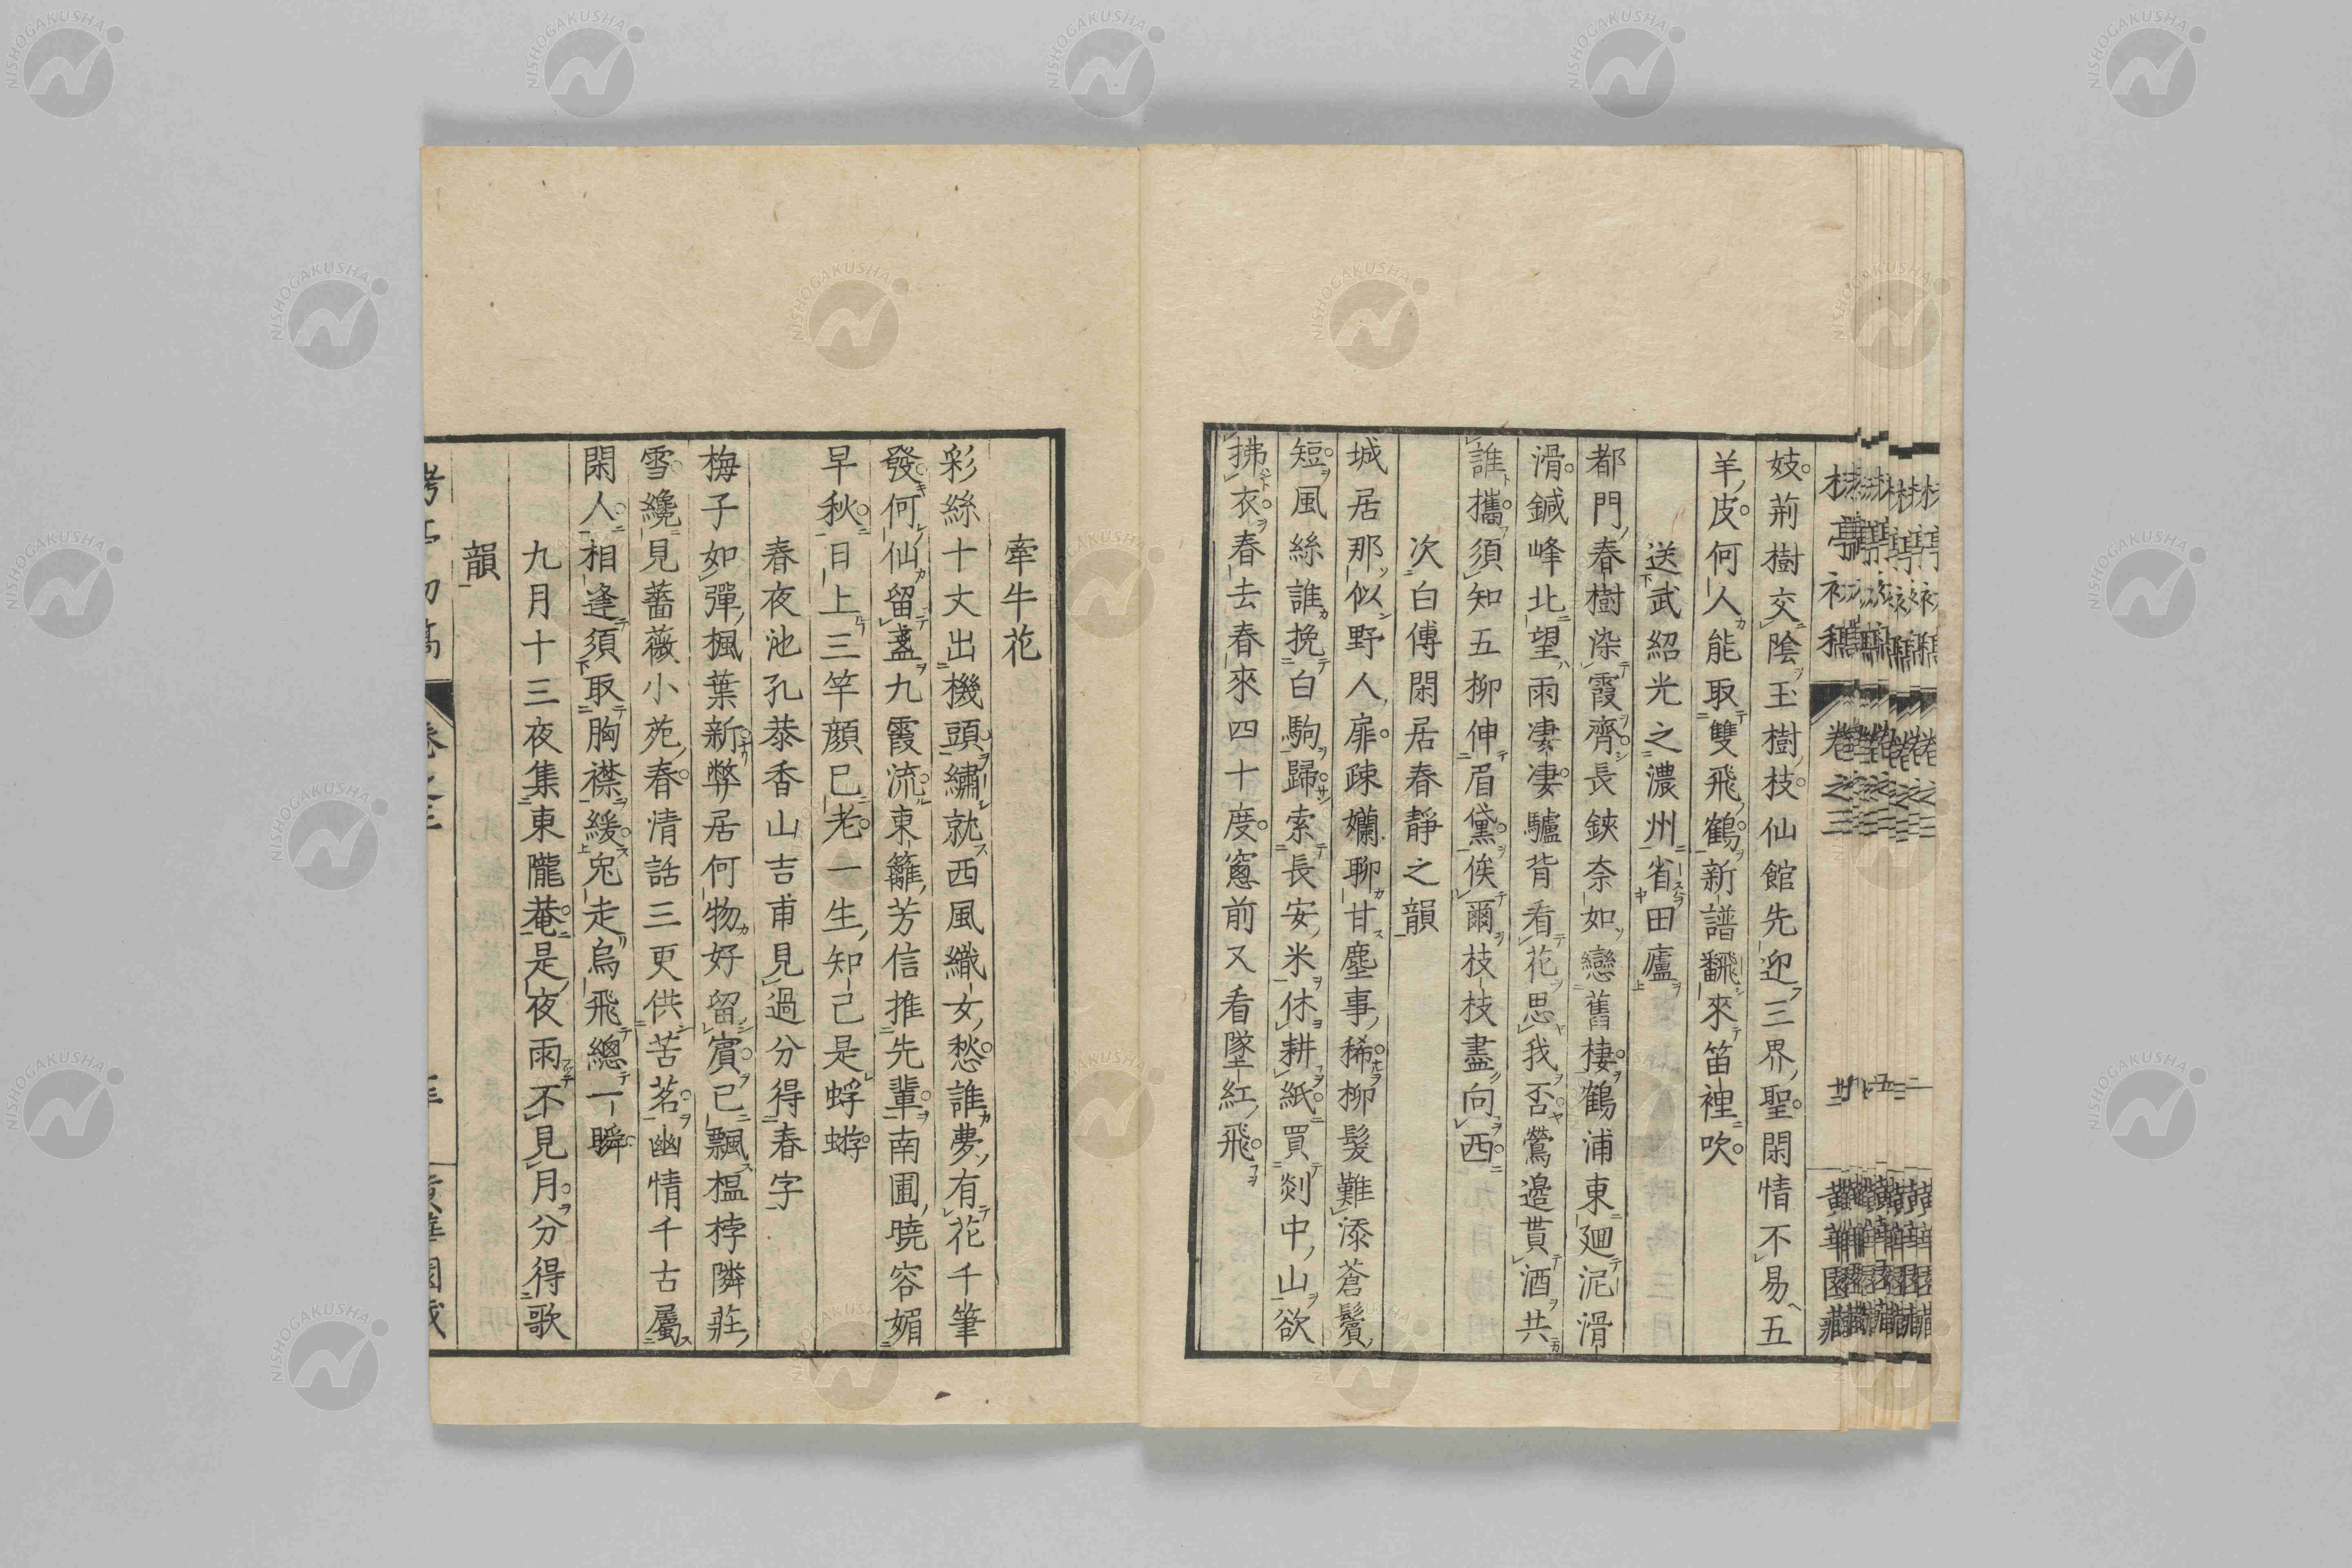 妓荊樹交陰玉樹枝仙館先迎三界聖閑情不易五
羊皮何人能取雙飛鶴新譜飜來笛裡吹
送武紹光之濃州省田廬
都門春樹染霞齊長鋏奈如戀舊棲鶴浦東廻泥滑
滑鍼峰北望雨凄凄驢背看花思我否鶯邊貰酒共
誰攜須知五柳伸眉黛俟爾枝枝盡向西
次白傅閑居春靜之韻
城居那似野人扉疎嬾聊甘塵事稀柳髮難添蒼鬢
短風絲誰挽白駒歸索長安米休耕紙買剡中山欲
拂衣春去春來四十度窻前又看墜紅飛
牽牛花
彩絲十丈出機頭繡就西風織女愁誰夢有花千筆
發何仙留盞九霞流東籬芳信推先輩南圃曉容媚
早秋日上三竿顏已老一生知己是蜉蝣
春夜池孔恭香山吉甫見過分得春字
梅子如彈楓葉新弊居何物好留賓已飄榲桲隣莊
雪纔見薔薇小苑春情話三更供苦茗幽情千古屬
閑人相逢須取胸襟緩兔走烏飛總一瞬
九月十三夜集東隴菴是夜雨不見月分得歌
韻
卷之三
NISHOGAKUSHA